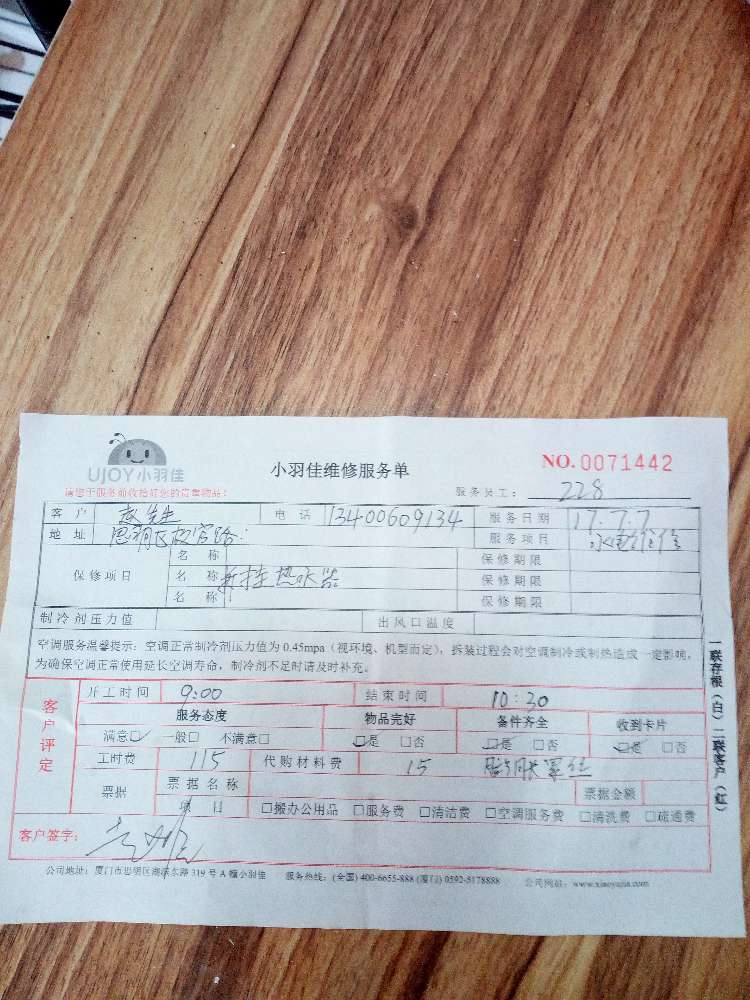 UJOY小羽佳
小羽佳维修服务单
NO.0071442
请您于服务前收拾好您的贵重物品!
服务员工: 228
客户 先生 电话 13400609134 服务日期 17.7.7
地址 思明区 路 服务项目 水电维修
保修项目 名称 保修期限
名称 拆挂热水器 保修期限
名称 保修期限
制冷剂压力值 出风口温度
空调服务温馨提示:空调正常制冷剂压力值为0.45mpa(视环境、机型而定),拆装过程会对空调制冷或制热造成一定影响,
为确保空调正常使用延长空调寿命,制冷剂不足时请及时补充。
客户评定
开工时间 9:00 结束时间 10:30
服务态度 物品完好 备件齐全 收到卡片
满意☑ 一般□ 不满意□ ☑是 □否 ☑是 □否 ☑是 □否
工时费 115 代购材料费 15 膨胀螺丝
票据 票据名称 票据金额
项目 □搬办公用品 □服务费 □清洁费 □空调服务费 □清洗费 □疏通费
客户签字:
公司地址:厦门市思明区湖滨东路319号A幢小羽佳 服务热线:(全国)400-6655-888 (厦门)0592-5178888 公司网站:www.xiaoyujia.com
一联存根(白)二联客户(红)